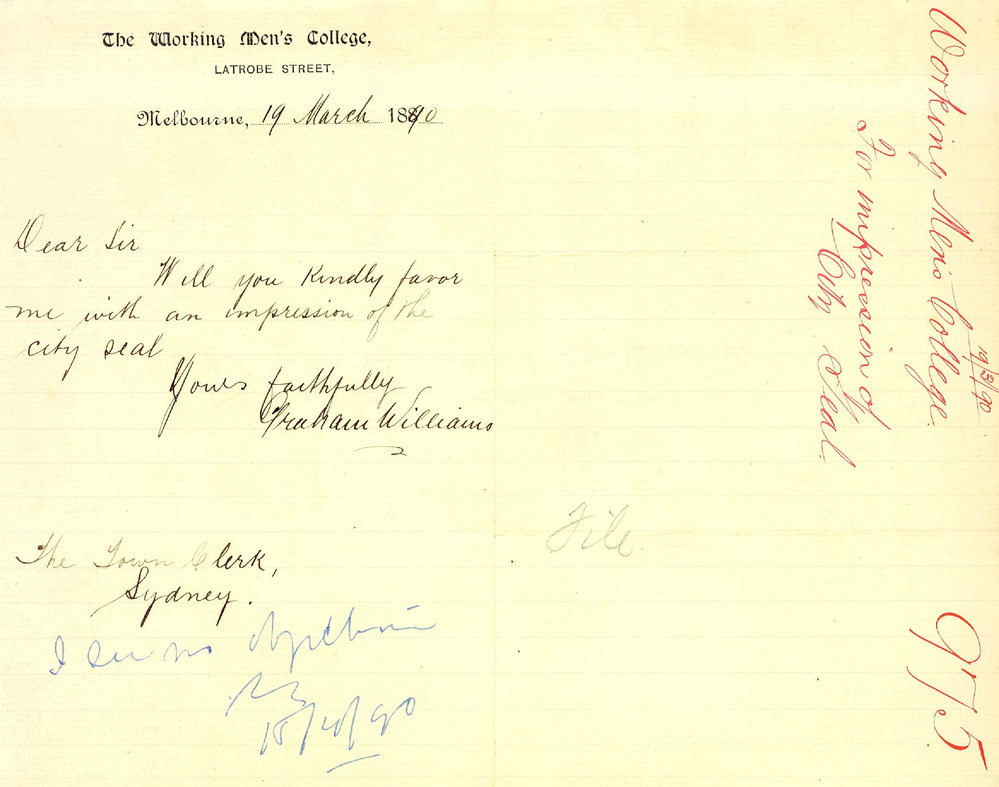 The Working Men's College,
LATROBE STREET,
Melbourne, 19 March 1890
Dear Sir
Will you kindly favor
me with an impression of the
city seal
Yours faithfully
Graham Williams
The Town Clerk,
Sydney.
I see no objection
Working Men's College.
19/3/90
For impression of
City Seal.
File
975